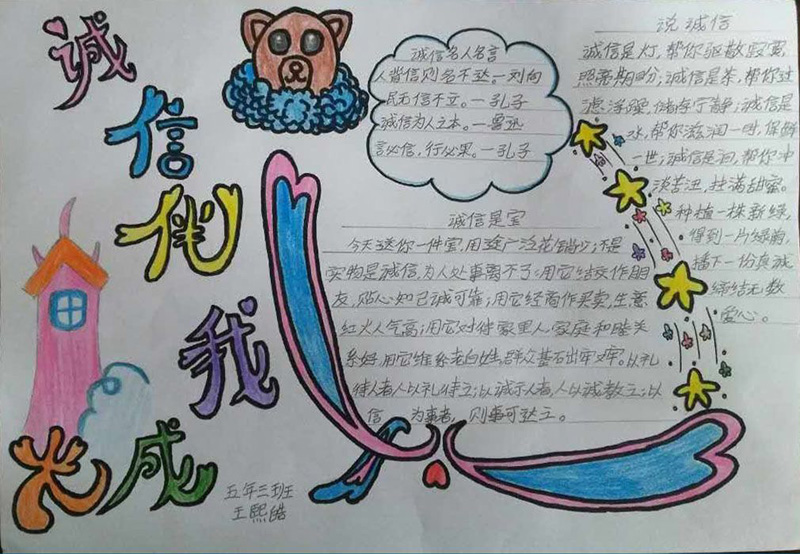 诚
信
伴
我
成
长
诚信名人名言
人背信则名不达。—刘向
民无信不立。—孔子
诚信为人之本。—鲁迅
言必信,行必果。—孔子
说诚信
诚信是灯,帮你驱散寂寞,
照亮期盼;诚信是茶,帮你过
滤浮躁,储存宁静;诚信是
水,帮你滋润一时,保鲜
一世;诚信是泪,帮你冲
淡苦涩,挂满甜蜜。
种植一株新绿,
得到一片绿荫,
播下一份真诚
缔结无数
爱心。
诚信是宝
今天送你一件宝,用途广泛花销少;不是
实物是诚信,为人处事离不了;用它结交作朋
友,贴心知己诚可靠;用它经商作买卖,生意
红火人气高;用它对付家里人,家庭和睦关
系好,用它维系老百姓,群众基石出牢。以礼
待人者,人以礼待之;以诚示人者,人以诚教之;以
信 为事者, 则事可达之。
五年三班
王熙皓